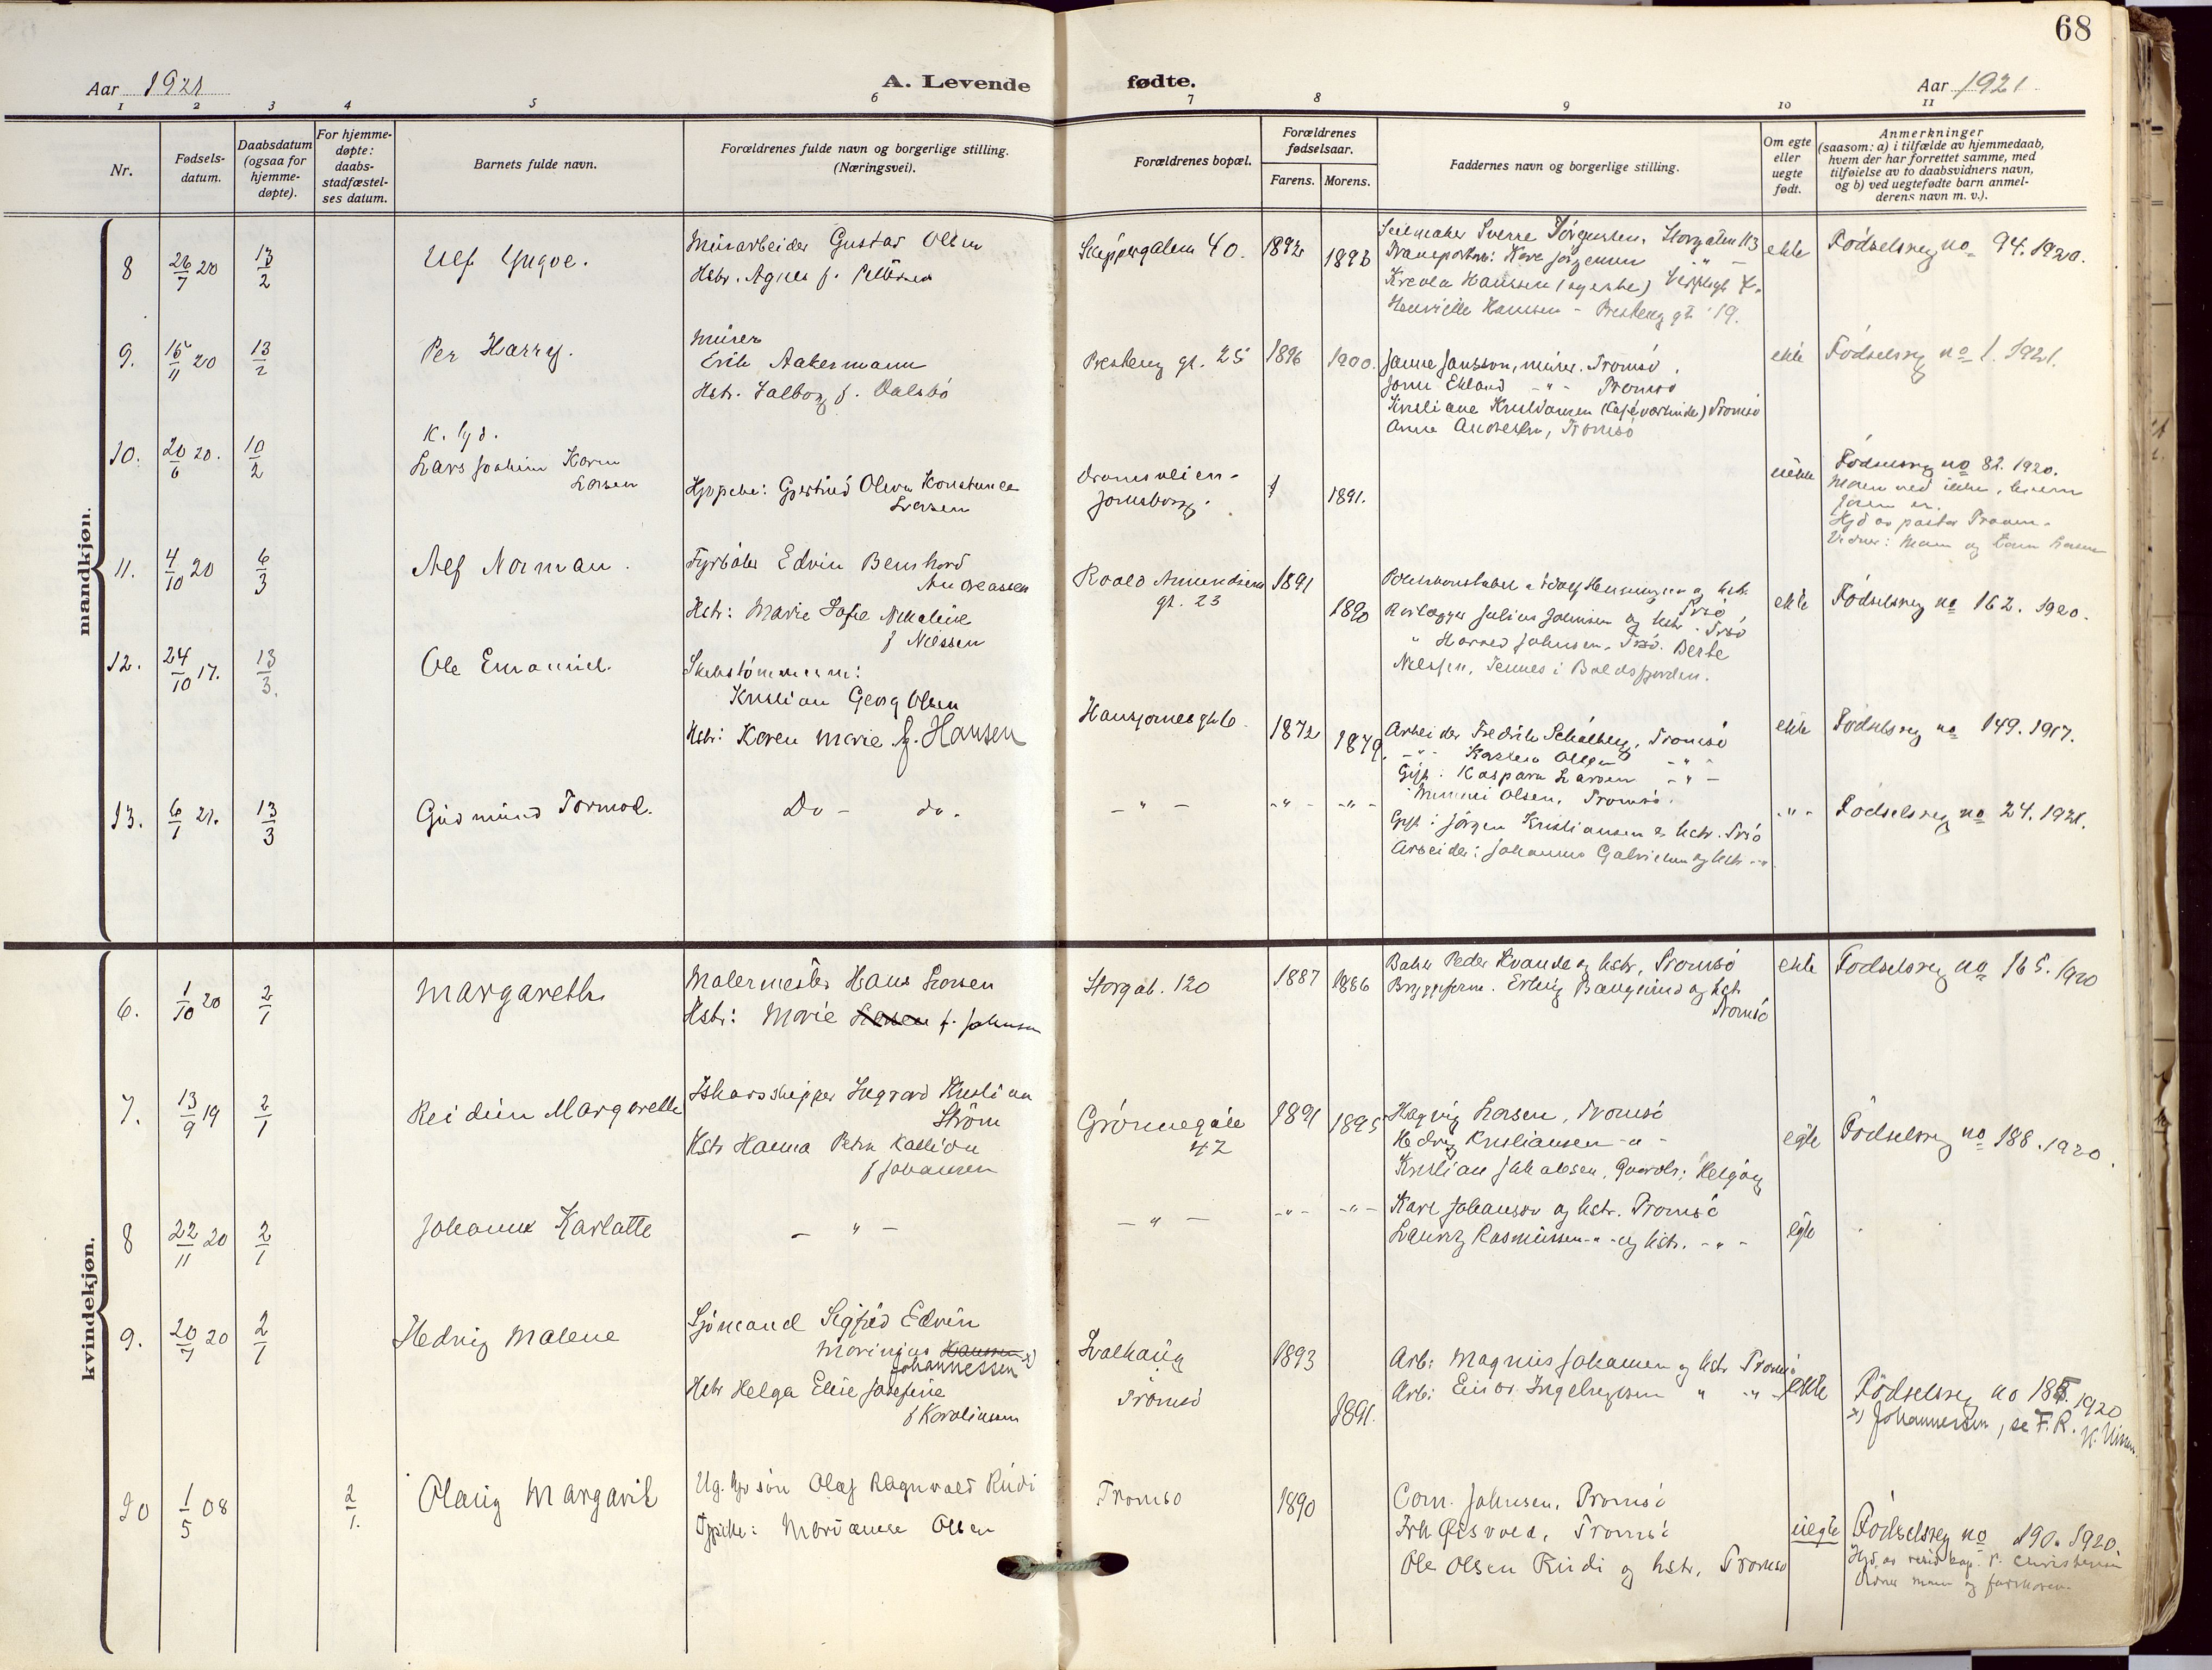 68
Aar 1921
A. Levende fødte.
Aar 1921
1 2 3 4 5 6 7 8 9 10 11
Nr.
Fødsels-
datum.
Daabsdatum
(ogsaa for
hjemme-
døpte).
For hjemme-
døpte:
daabs-
stadfæstel-
ses datum.
Barnets fulde navn.
Forældrenes fulde navn og borgerlige stilling.
(Næringsvei).
Forældrenes bopæl.
Forældrenes
fødselsaar.
Farens. Morens.
Faddernes navn og borgerlige stilling.
Om egte
eller
uegte
født.
Anmerkninger
(saasom: a) i tilfælde av hjemmedaab,
hvem der har forrettet samme, med
tilføielse av to daabsvidners navn,
og b) ved uegtefødte barn anmel-
derens navn m. v.).
mandkjøn.
8
26/7 20
13/2
Ulf Yngve.
Murarbeider Gustav Olsen
Hstr. Agnes f. Pettersen
Skippergaten 40.
1892
1893
Storgaten 113
Henriette Hansen - Presteng gt 19.
ekte
Fødselsreg no 94. 1920.
9.
15/11 20
13/2
Per Harry.
Murer
Erik Aakermann
Hstr. Valborg f. Dalsbö
Presteng gt. 25
1896
1900.
Janne Jansson, murer. Tromsö.
John Eklund -"- Tromsö
Kristiane Kristiansen (Kafévertinde) Tromsö
Anna Andersen, Tromsö
ekte
Fødselsreg no 1. 1921.
10.
20/6 20.
10/2
Lars Joakim Karm
Larsen
Hjypike: Gjertrud Olava Konstance
Larsen
Dramsveien -
Jomsborg.
1891.
uekte
Fødselsreg no 82. 1920.
Hjd av pastor
11.
4/10 20
6/3
Alf Norman.
Fyrböter Edvin Bernhard
Andreassen
Hstr: Marie Sofie Nikoline
f Nilssen
Roald Amundsens
gt. 23
1891
1890
Politikonstabel Adolf Henningsen og hstr.
Trsö
Rörlægger Julius Johnsen og hstr. Trsö
" Harald Johnsen, Trsö. Berte
Nilssen, Tennes i Balsfjorden.
ekte
Fødselsreg no 162. 1920.
12.
24/10 17.
13/3.
Ole Emanuel.
Skibstömmerm:
Kristian Georg Olsen
Hstr: Karen Marie f. Hansen
Hansjornesgt 6.
1872
1879.
Arbeider Fredrik Schölberg, Tromsö
-"- Olsen -"-
Gift: Kaspara Larsen -"-
Minni Olsen, Tromsö.
ekte
Fødselsreg no 149. 1917.
13.
6/1 21.
13/3
Gudmund Tormod.
Do - do.
-"-
-"- -"-
Gift: Jörgen Kristiansen & hstr. Trsö
Arbeider: Johannes Gabrielsen og hstr -"-
-"-
Fødselsreg no 24. 1921.
kvindekjøn.
6.
1/10 20
2/1
Margareth
Malermester Hans Larsen
Hstr: Marie Larsen f. Johnsen
Storgat. 120
1887
1886
Baker Peder Kvande og hstr, Tromsö
Bryggeform. Erling Bangsund og hstr
Tromsö
ekte
Fødselsreg no 165. 1920
7.
13/9 19
2/1
Reidun Margarethe
Ishavsskipper Ingvard Kristian
Ström
Hstr Hanna Petra
f Johansen
Grönnegate
42
1891
1895
Hagvig Larsen, Tromsö
Hedvig Kristiansen -"-
Kristian Jakobsen, Helgöy
egte
Fødselsreg no 188. 1920.
8
22/11 20
2/1
Johanne Karlotte
- " -
- " -
-"- -"-
Karl Johansson og hstr. Tromsö
Lauritz Rasmussen -"- og hstr. -"-
egte
9.
20/7 20
2/1
Hedvig Malene
Sjömand Sigfrid Edvin
Marinius Hanssen x)
Johannessen
Hstr Helga Elise Josefine
f Karoliussen
Solhaug
Tromsö
1893
1891.
Arb: Magnus Johansen og hstr Tromsö
Arb: Einar Ingebrigtsen " -"-
ekte
Fødselsreg no 185. 1920
x) Johannessen, se F.R.
10
1/5 08
2/1.
Olaug Margarit
Ug. Olaf Ragnvald Rudi
Gpike: Olsen
Tromsö
1890
Corn. Johnsen, Tromsö
Öisvold, Tromsö
Ole Olsen Rudi og hstr, Tromsö
uegte
Fødselsreg no 190. 1920.
Hjd. av resid. kap. Christensen